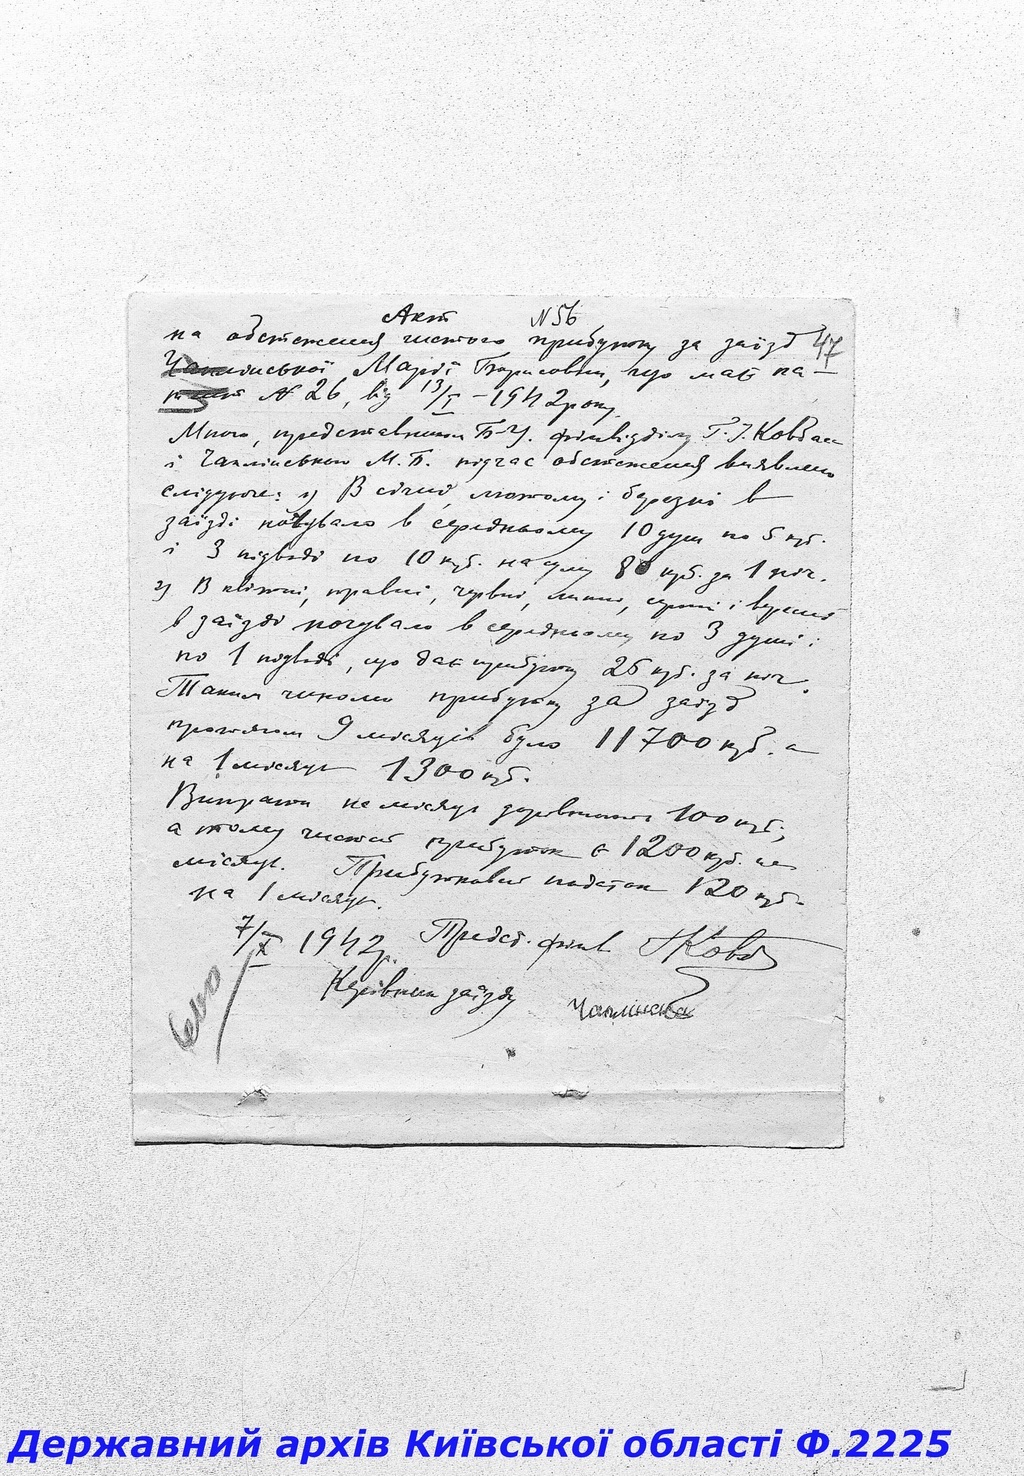 Акт N 56
на обстеження чистого прибутку за заїзд 47
Чаплінської Марії Борисовни, що має па
тент N 26, від 13/I – 1942 року.
Мною, представником Б-Ц. фінвідділу Г. І. Ковбаси
і Чаплінською М. Б. підчас обстеження виявлено
слідуюче: 1) В січні, лютому і березні в
заїзді ночувало в середньому 10 душ по 5 крб.
і 3 підводі по 10 крб. на суму 80 крб. за 1 ніч.
2) В квітні, травні, червні, липні, серпні і вересні
в заїзді ночувало в середньому по 3 душі і
по 1 подводі, що дає прибутку 25 крб. за ніч.
Таким чином прибутку за заїзд
протягом 9 місяців було 11700 крб. а
на 1 місяць 1300 крб.
Витрати на місяць дорівнюють 100 крб.,
а тому чистий прибуток є 1200 крб. на
місяць. Прибутковий податок 120 крб.
на 1 місяць.
7/X 1942 р. Предст. фінв ГКовб
Керівник заїзду Чаплінська
Державний архів Київської області Ф.2225